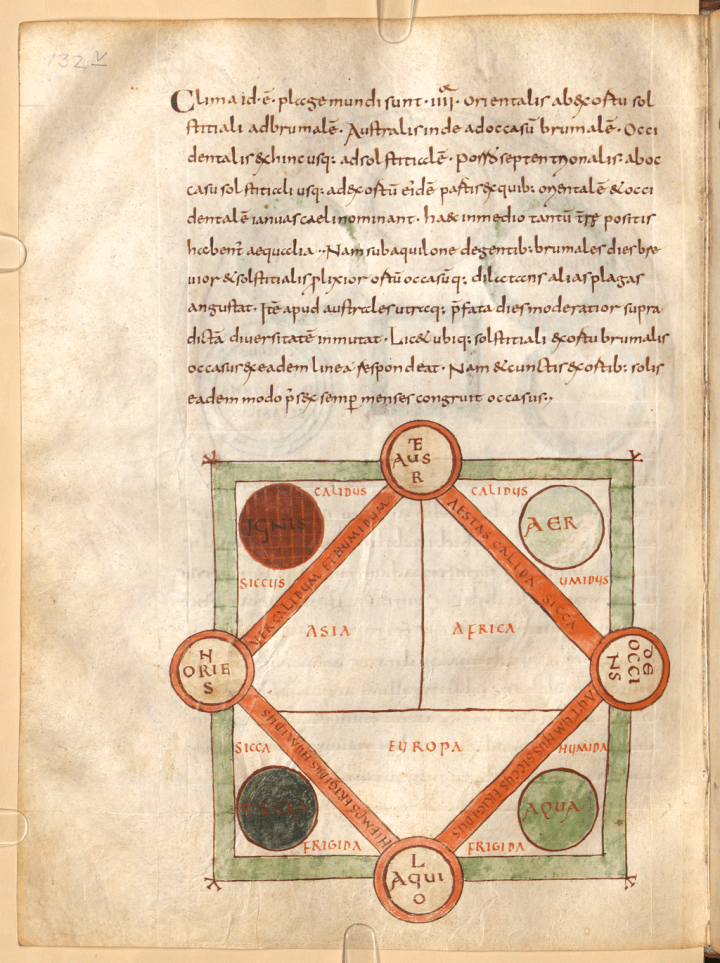 132 v
Clima id·ē· plage mundi sunt· iiii^or· Orientalis ab exortu sol
stitiali ad brumalē· Australis inde ad occasū brumalē· Occi
dentalis exhinc usq: ad solstitialē· Porro septentrionalis· ab oc
casu solstitiali usq: ad exortū eidē partis ex quib: orientalē & occi
dentalē ianuas caeli nominant· haec in medio tantū positis
habent aequalia·· Nam sub aquilone degentib: brumales dies bre
uior & solstitialis plixior ortū occasūq: dilatans alias plagas
angustat· Itē apud australes utraq: p̄fata dies moderatior supra
dictā diuersitatē inmutat· Lic& ubiq: solstitiali exortu brumalis
occasus ex eadem linea respondeat· Nam & cunctis exortib: solis
eadem modo p̄ sex semp menses congruit occasus··
EAUSR
CALIDUS
CALIDUS
IGNIS
AER
SICCUS
UMIDUS
VER CALIDUM ET HUMIDUM
AESTAS CALIDA SICCA
ASIA
AFRICA
H ORIE S
OCCI DE NS
EUROPA
SICCA
HUMIDA
HIEMPS FRIGIDUS HUMIDUS
AUTUMPNUS SICCUS FRIGIDUS
TERRA
AQUA
FRIGIDA
FRIGIDA
L AQUI O